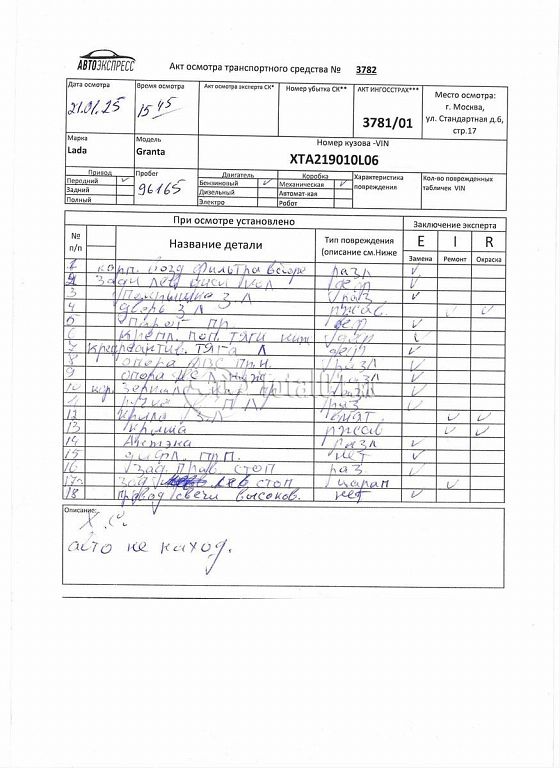 АВТОЭКСПРЕСС
Акт осмотра транспортного средства № 3782
Дата осмотра
21.01.25
Время осмотра
15 45
Акт осмотра эксперта СК*
Номер убытка СК**
АКТ ИНГОССТРАХ***
3781/01
Место осмотра:
г. Москва,
ул. Стандартная д.6,
стр.17
Марка
Lada
Модель
Granta
Номер кузова -VIN
XTA219010L06
Привод
Передний ✓
Задний
Полный
Пробег
96165
Двигатель
Бензиновый ✓
Дизельный
Электро
Коробка
Механическая ✓
Автомат-кая
Робот
Характеристика
повреждения
Кол-во поврежденных
табличек VIN
При осмотре установлено
Заключение эксперта
№
п/п
Название детали
Тип повреждения
(описание см.Ниже
E I R
Замена Ремонт Окраска
1 корп. возд фильтра разл ✓
2 зад лев деф ✓
3 Покрышка З Л раз ✓
4 дверь З Л ржав. ✓ ✓
5 Порог пр. деф ✓
6 крепл. поп. тяги ниж деф ✓
7 реактив. тяга Л деф ✓
8 опора ДВС пр.н. разл ✓
9 опора ДВС разл ✓
10 кор. зеркала пр разл ✓
1 ручка П Л раз ✓
12 крыло З Л ✓ ✓
13 крыша ржав ✓ ✓
14 Антэна разл ✓
15 п.п. нет ✓
16 зад. прав. стоп раз ✓
17 зад лев стоп царап ✓
18 провод свечи высоков. нет ✓
Описание:
Х.С.
авто не наход.